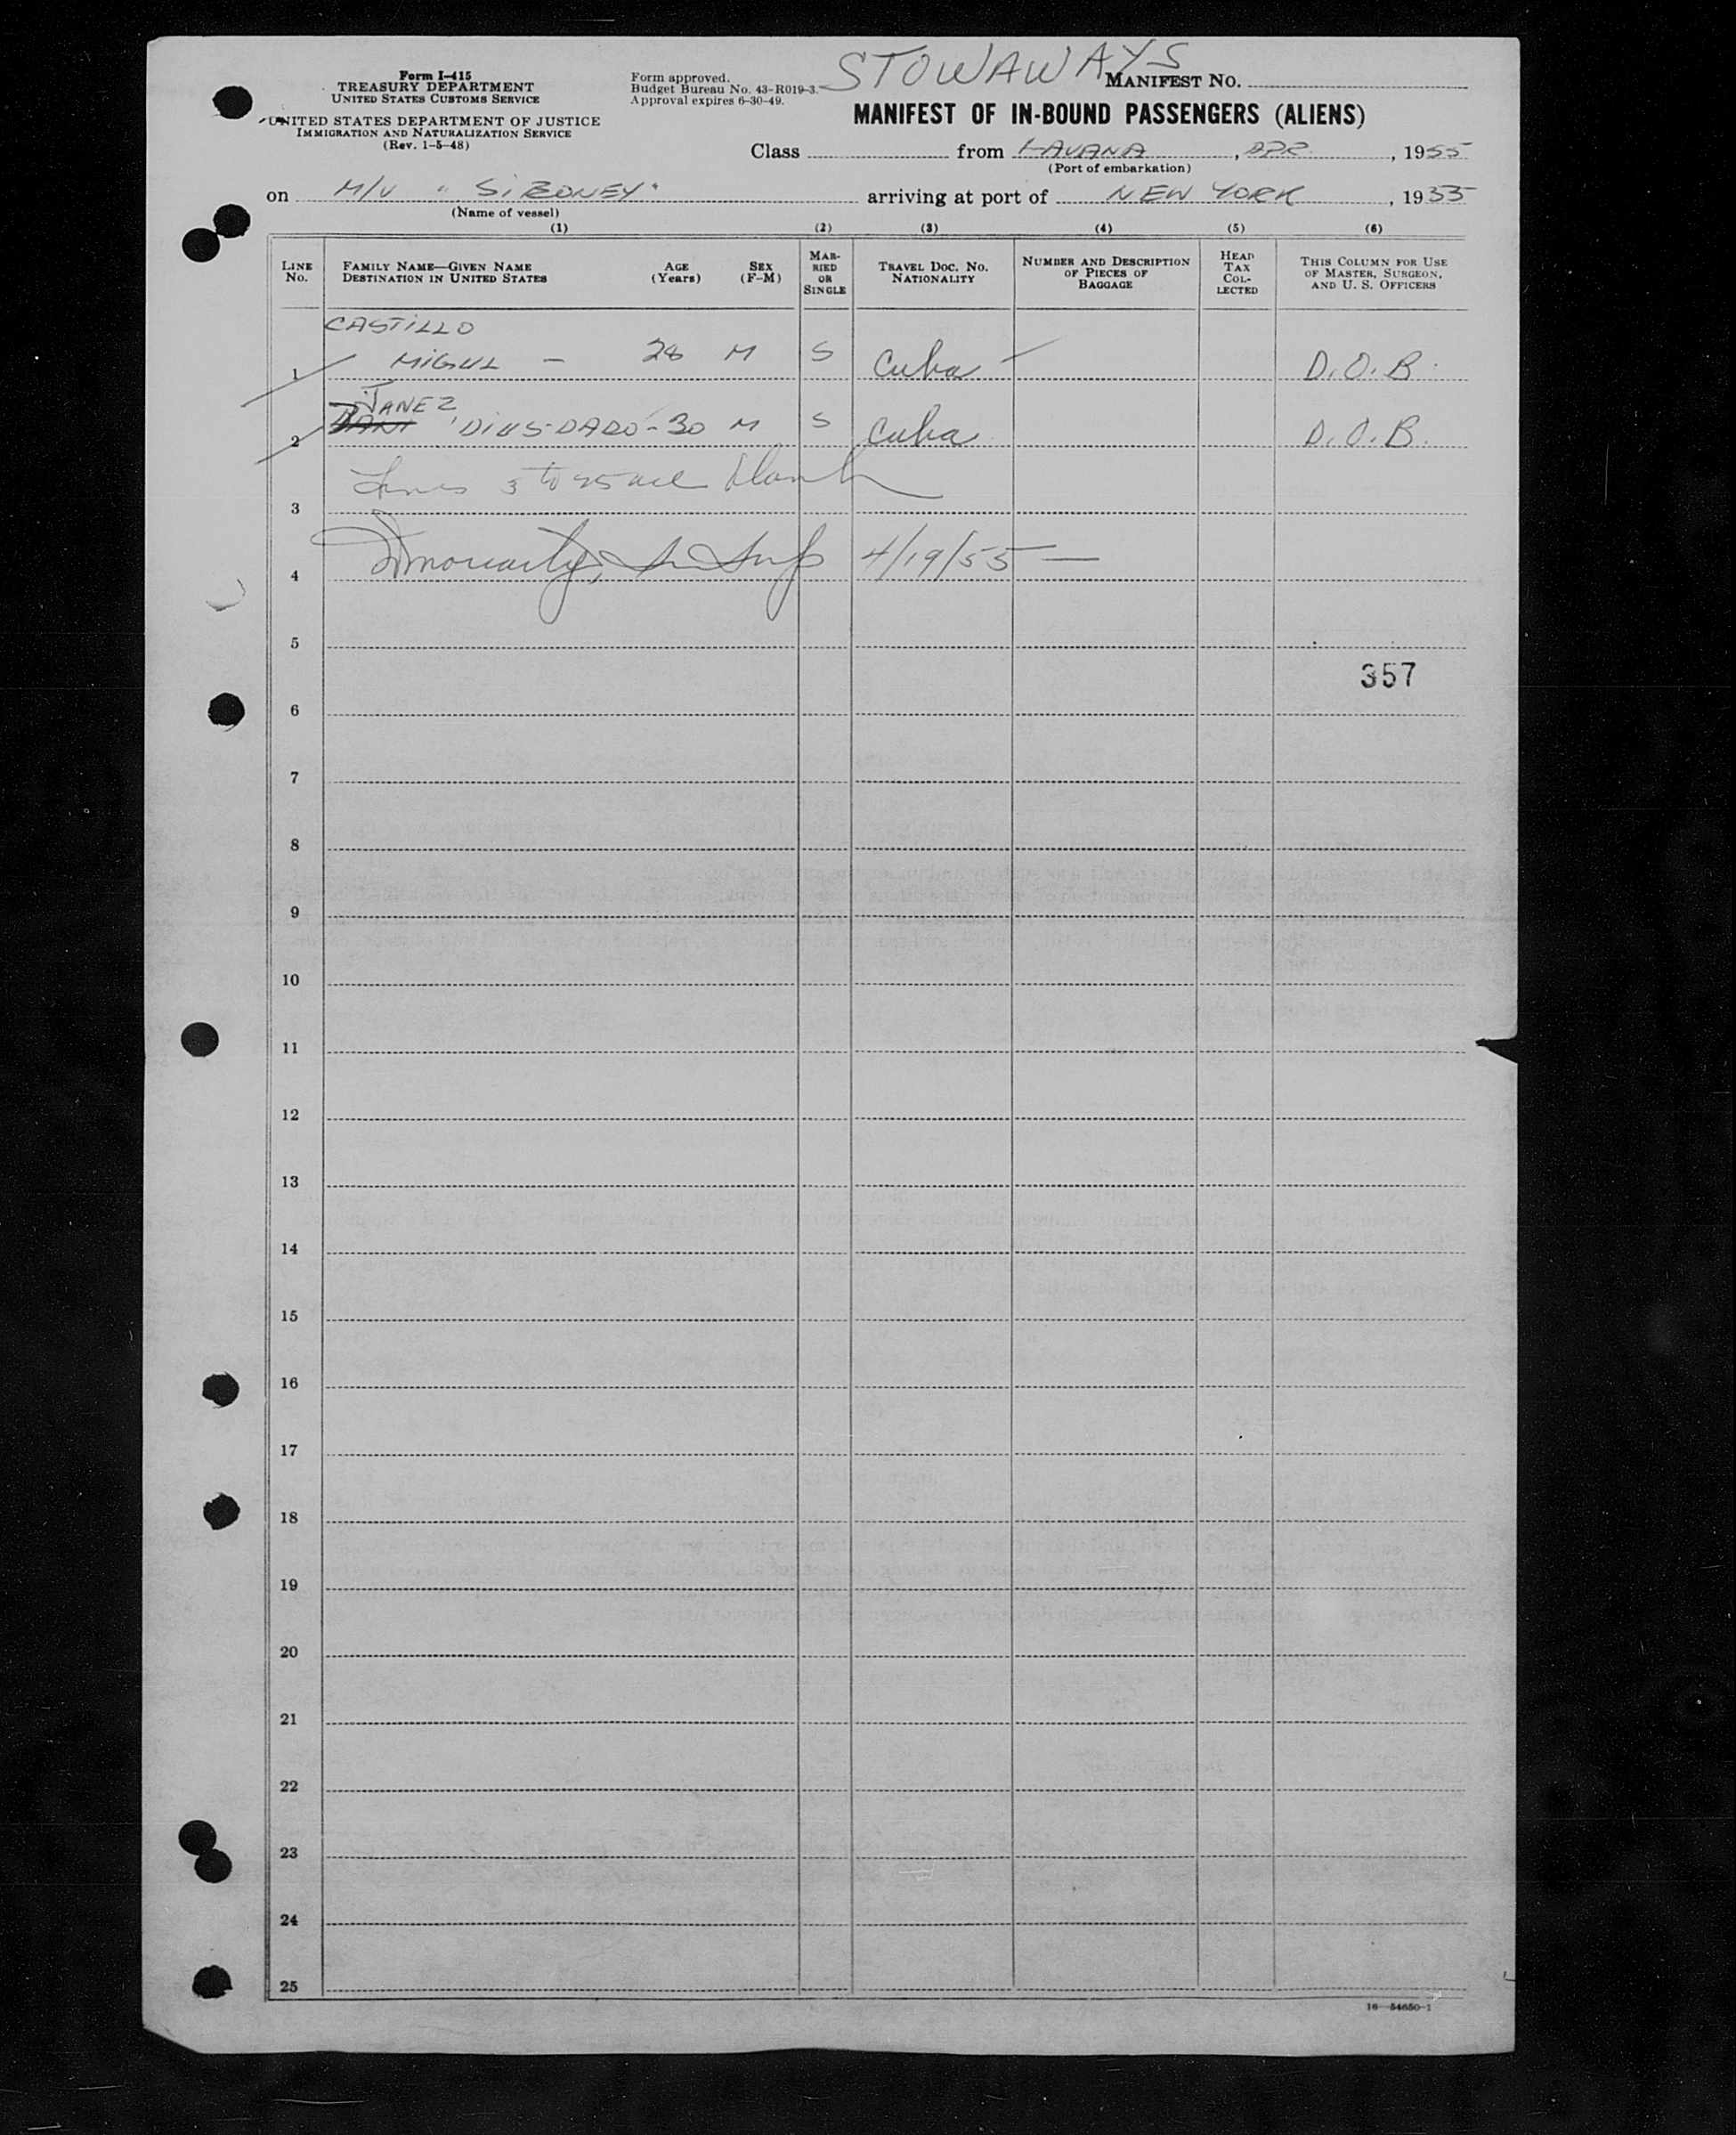 STOWAWAYS
Form I-415
TREASURY DEPARTMENT
UNITED STATES CUSTOMS SERVICE
UNITED STATES DEPARTMENT OF JUSTICE
IMMIGRATION AND NATURALIZATION SERVICE
(Rev. 1-5-48)
Form approved.
Budget Bureau No. 43-R019-3.
Approval expires 6-30-49.
MANIFEST NO.
MANIFEST OF IN-BOUND PASSENGERS (ALIENS)
Class from HAVANA, APR. , 1955
(Port of embarkation)
on M/V "SIBONEY" arriving at port of NEW YORK , 1955
(Name of vessel)
(1) (2) (3) (4) (5) (6)
LINE NO.
FAMILY NAME—GIVEN NAME
DESTINATION IN UNITED STATES
AGE (Years)
SEX (F-M)
MARRIED OR SINGLE
TRAVEL DOC. NO.
NATIONALITY
NUMBER AND DESCRIPTION OF PIECES OF BAGGAGE
HEAD TAX COLLECTED
THIS COLUMN FOR USE OF MASTER, SURGEON, AND U. S. OFFICERS
CASTILLO
1 MIGUL — 28 M S Cuba D.O.B.
JANEZ
2 DIUS-DADO - 30 M S Cuba D.O.B.
Lines 3 to 25 incl blank
3
4 4/19/55 —
5
357
6
7
8
9
10
11
12
13
14
15
16
17
18
19
20
21
22
23
24
25
16—54650-1